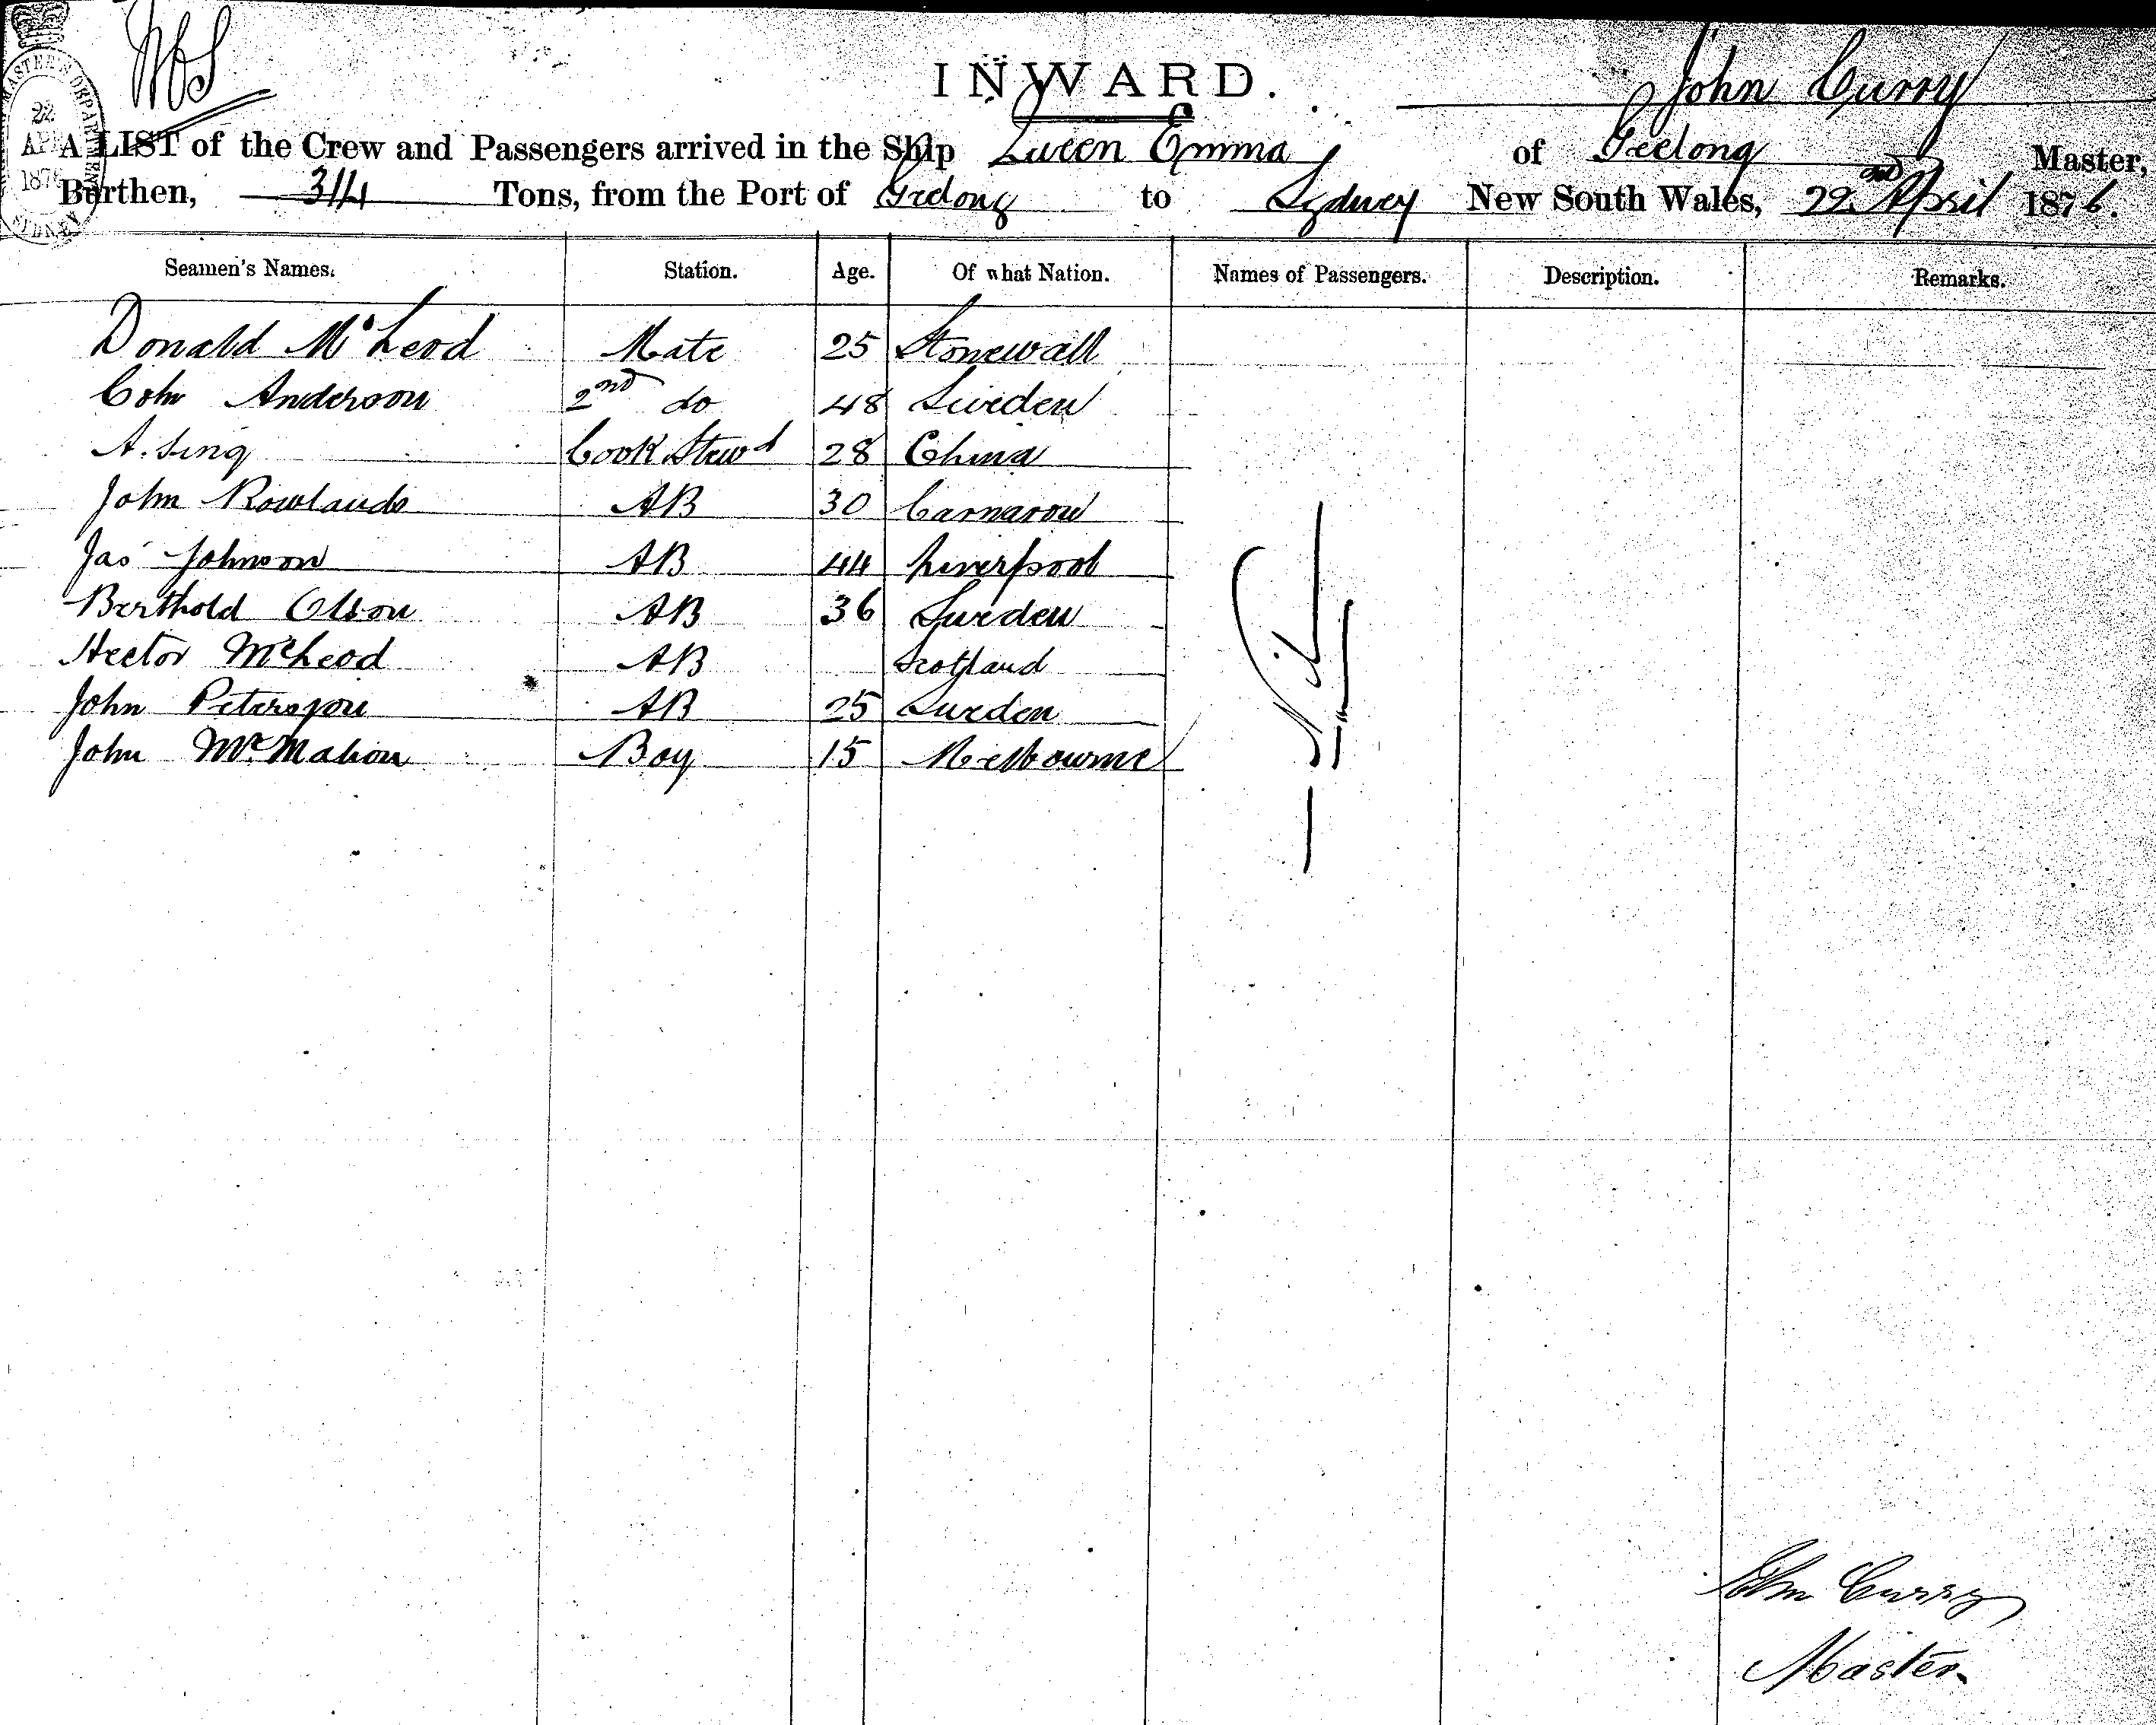 INWARD.
John Curry
A LIST of the Crew and Passengers arrived in the Ship Queen Emma of Geelong Master,
Burthen, 314 Tons, from the Port of Geelong to Sydney New South Wales, 22nd April 1876.
MASTER'S DEPARTMENT
22
AP
1876
SYDNEY
Seamen's Names. Station. Age. Of what Nation. Names of Passengers. Description. Remarks.
Donald McLeod Mate 25 Stonewall
Anderson 2nd do 48 Sweden
A. Sing Cook Stewd 28 China
John Rowlands AB 30 Carnarow
Jas Johnson AB 44 Liverpool
Berthold Olson AB 36 Sweden
Hector McLeod AB Scotland
John Peterson AB 25 Sweden
John McMahon Boy 15 Melbourne
— Nil —
John Curry
Master